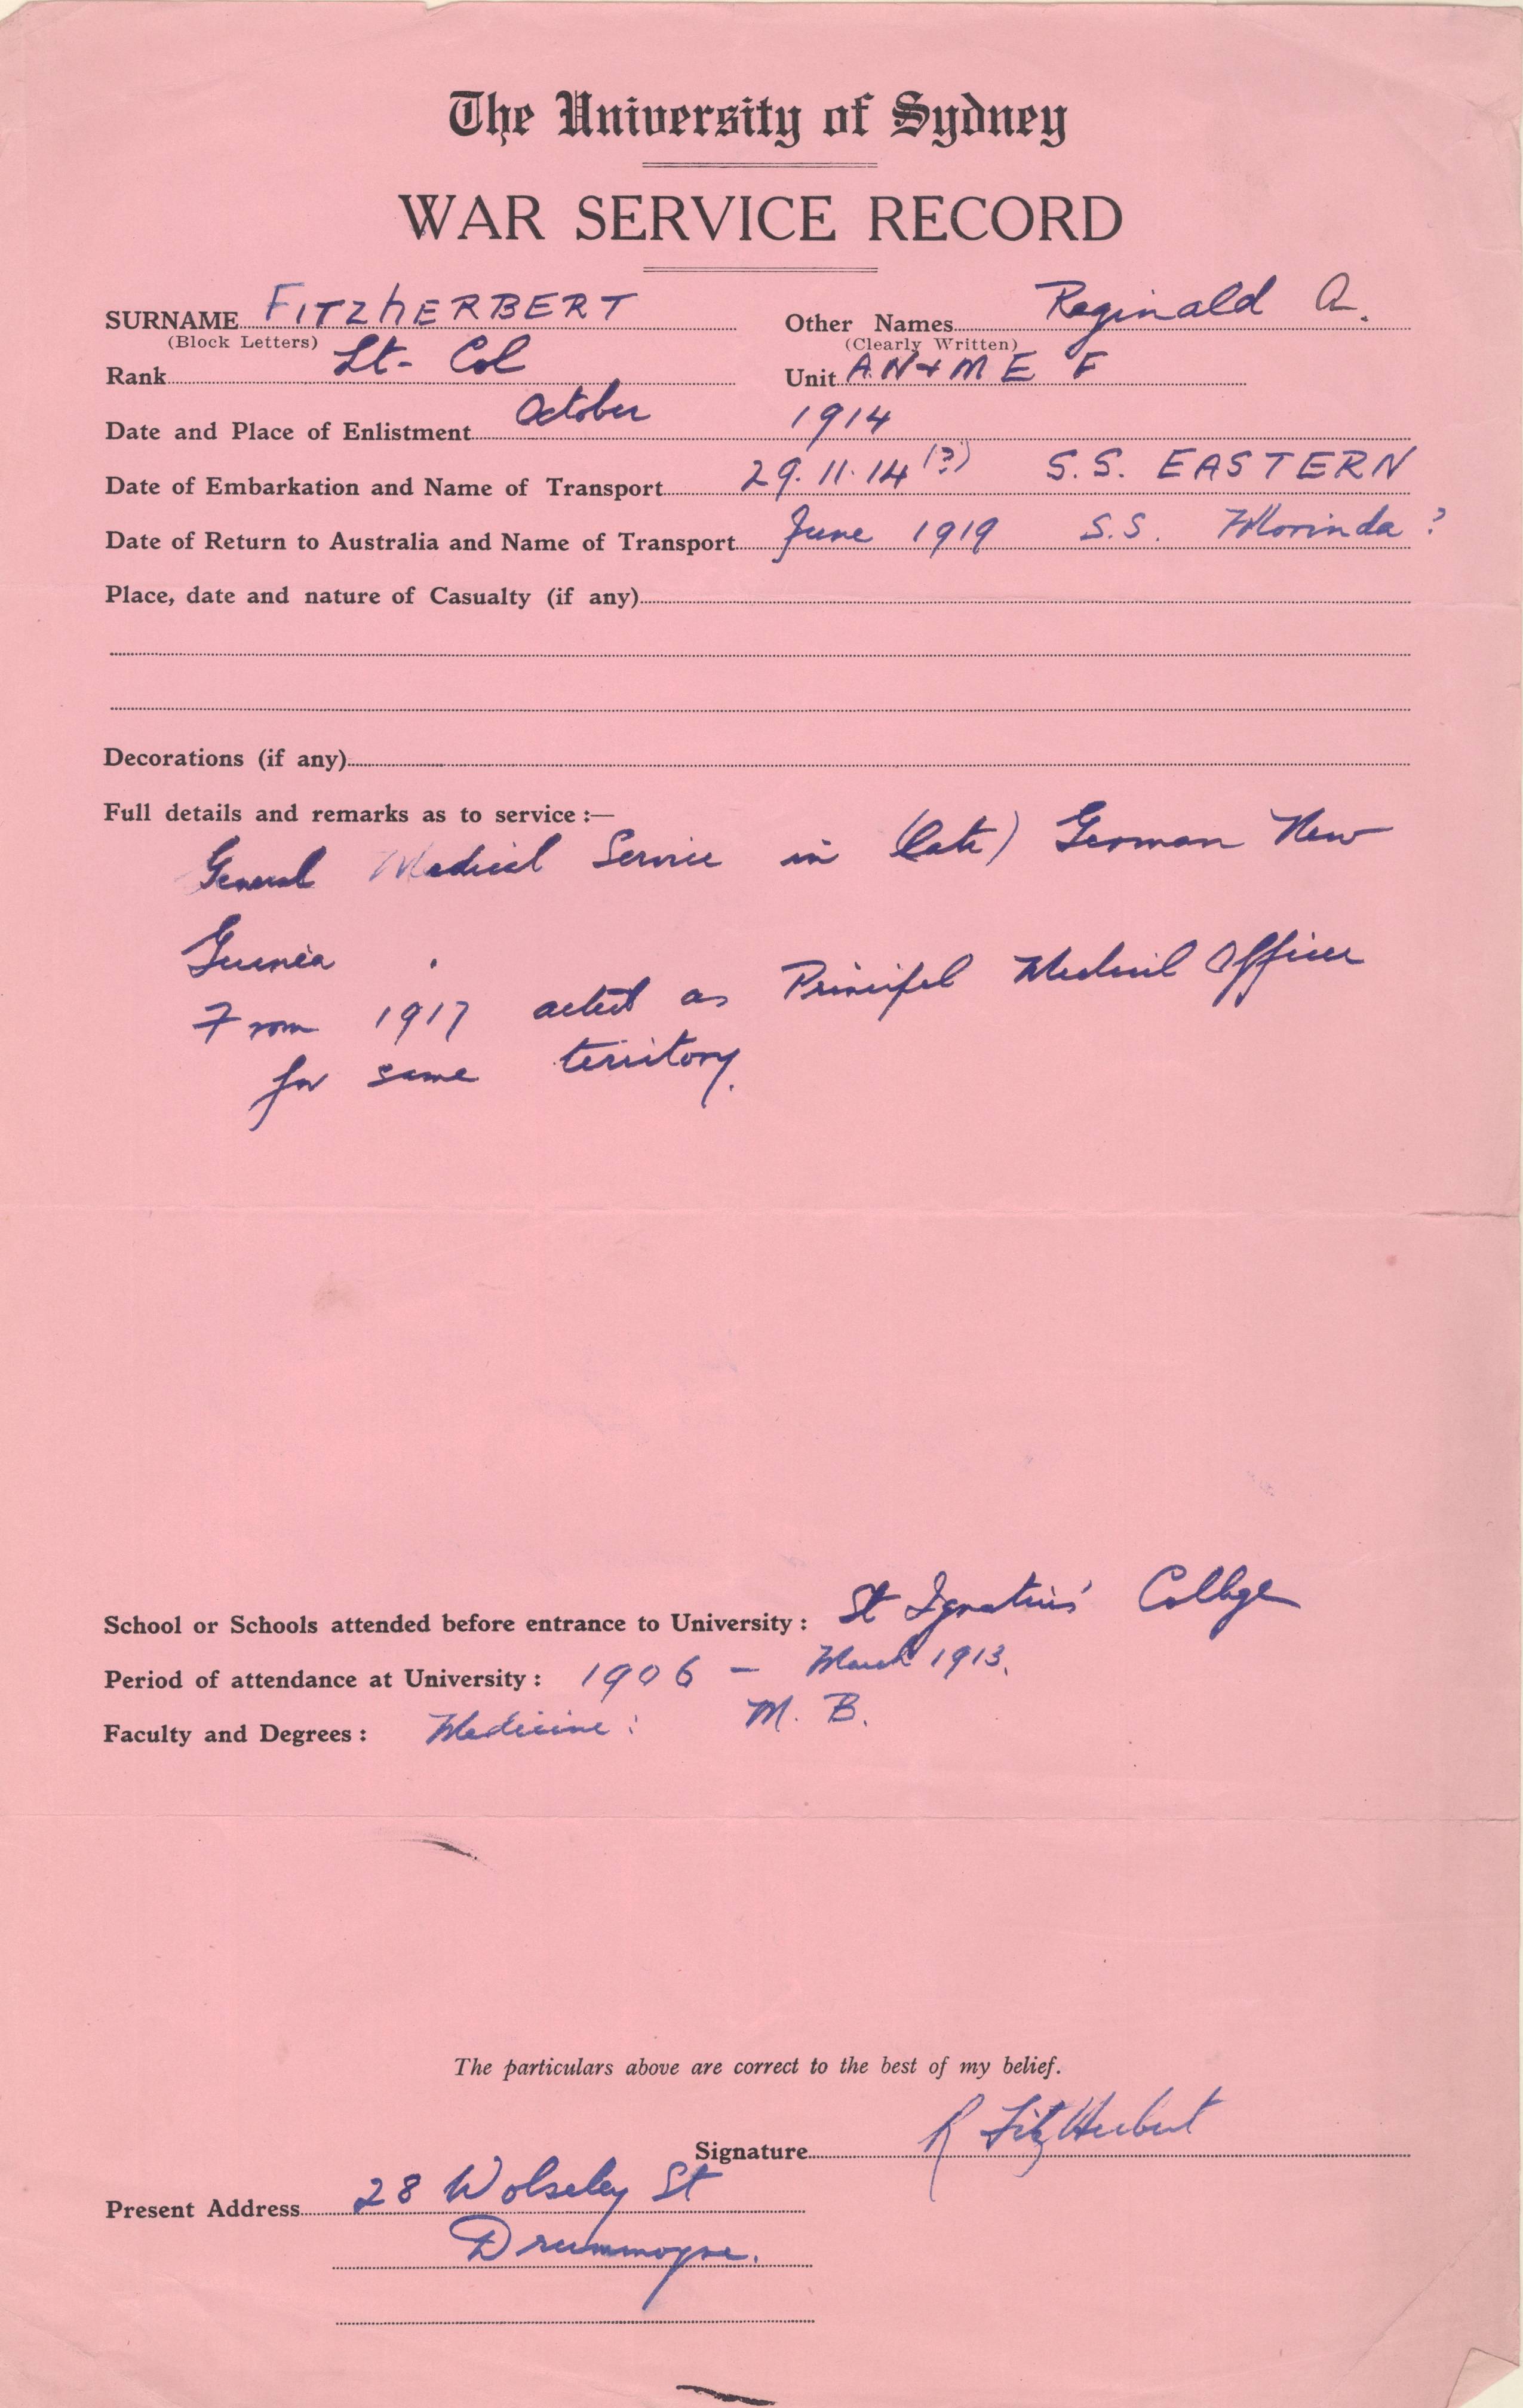 The University of Sydney
WAR SERVICE RECORD
SURNAME FITZhERBERT Other Names Reginald A.
(Block Letters) (Clearly Written)
Rank Lt- Col Unit A.N+M E F
Date and Place of Enlistment October 1914
Date of Embarkation and Name of Transport 29.11.14 (?) S.S. EASTERN
Date of Return to Australia and Name of Transport June 1919 S.S. Morinda ?
Place, date and nature of Casualty (if any)
Decorations (if any)
Full details and remarks as to service :—
General Medical Service in (late) German New
Guinea .
From 1917 acted as Principal Medical Officer
for same territory.
School or Schools attended before entrance to University : St Ignatius' College
Period of attendance at University : 1906 - March 1913.
Faculty and Degrees : Medicine : M. B.
The particulars above are correct to the best of my belief.
Signature R FitzHerbert
Present Address 28 Wolseley St
Drummoyne.